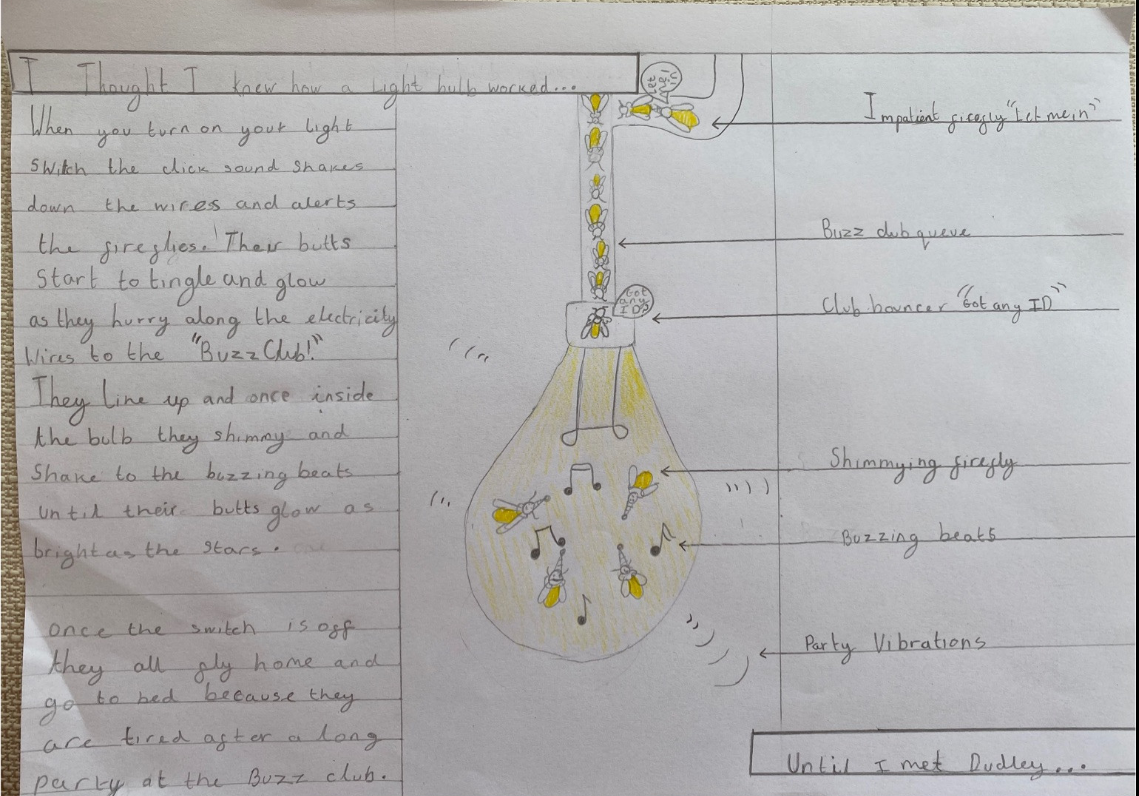 I Thought I knew how a Light bulb worked...
When you turn on your light
Switch the click sound shakes
down the wires and alerts
the fireflies. Their butts
Start to tingle and glow
as they hurry along the electricity
Wires to the "Buzz Club!"
They line up and once inside
the bulb they shimmy and
Shake to the buzzing beats
until their butts glow as
bright as the stars.
once the switch is off
they all fly home and
go to bed because they
are tired after a long
party at the Buzz club.
Let
Got
any
ID?
Impatient firefly "Let me in"
Buzz club queue
Club bouncer "Got any ID"
Shimmying firefly
Buzzing beats
Party Vibrations
Until I met Dudley...